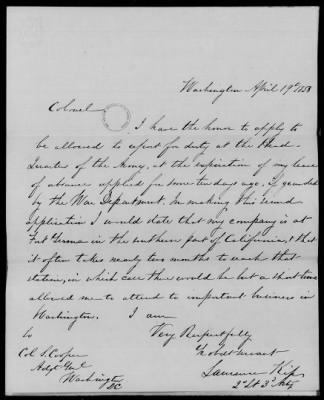 Washington April 19th 1858
Colonel
I have the honor to apply to
be allowed to report for duty at the Head
Quarters of the Army, at the expiration of my leave
of absence applied for some ten days ago, if granted
by the War Department. In making this second
application I would state that my company is at
Fort Yuma in the southern part of California, & that
it often takes nearly two months to reach that
station, in which case there would be but a short time
allowed me to attend to important business in
Washington. I am
Very Respectfully
Yr obet servant
Lawrence Kip
2d Lt 3d Arty
to
Col S. Cooper
Adjt Genl
Washington
DC